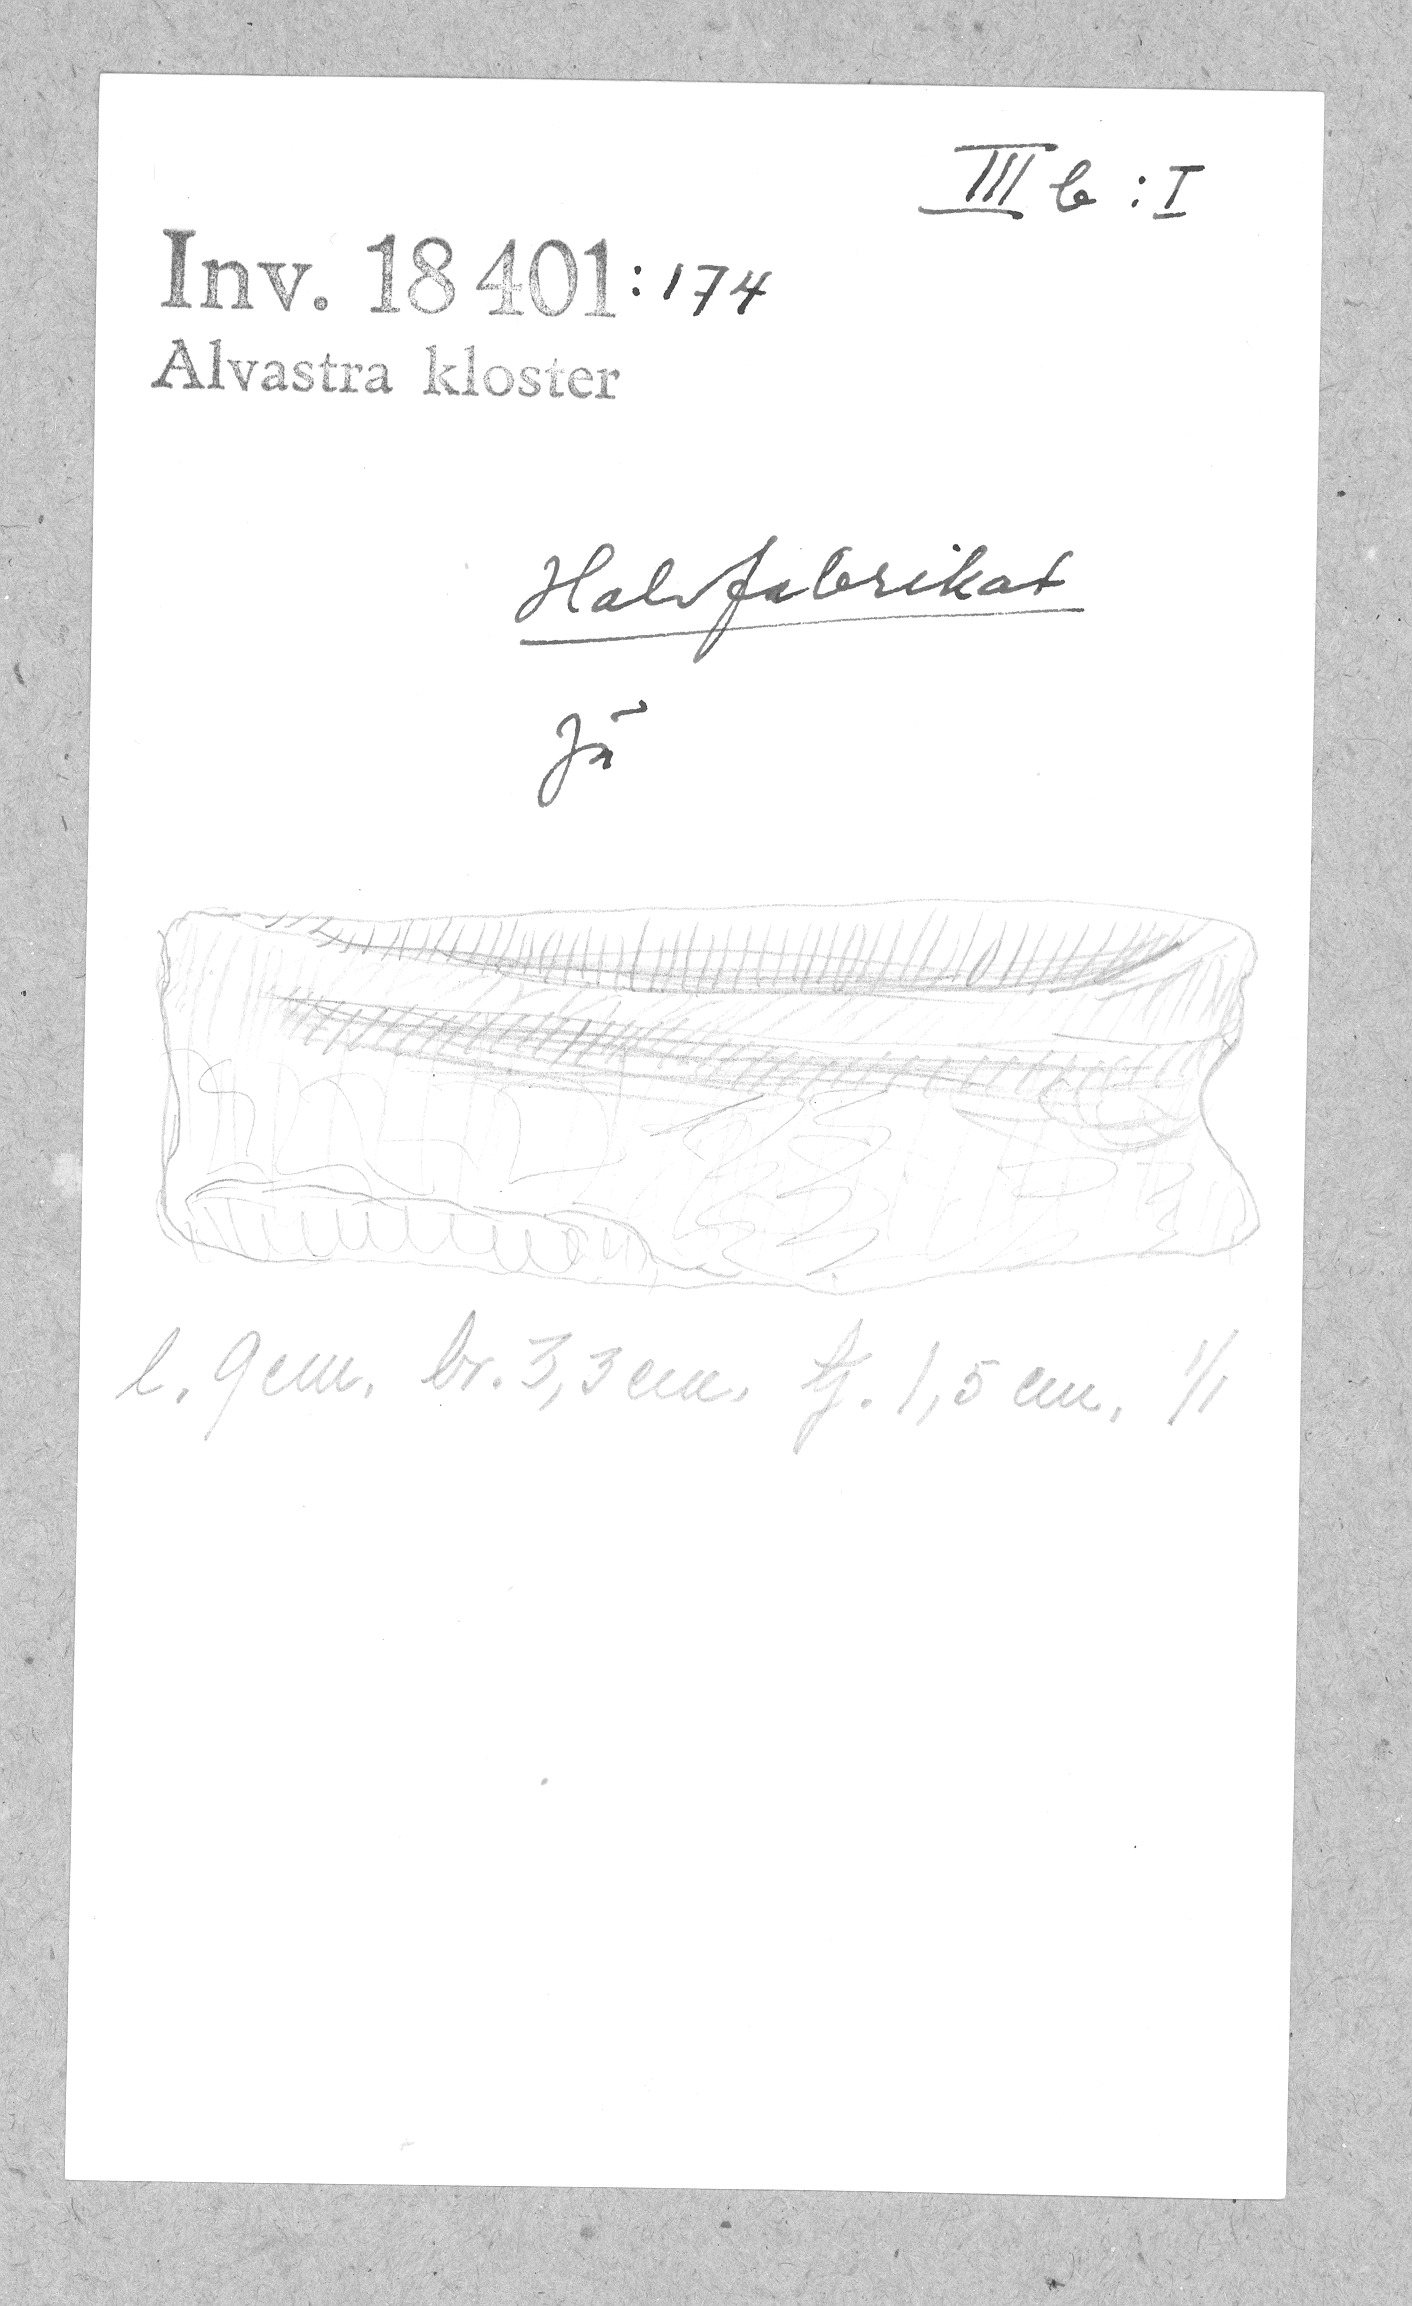 III b : I
Inv. 18 401:174
Alvastra kloster
Halvfabrikat
Jä
l. 9 cm. br. 3,3 cm. tj. 1,5 cm. 1/1